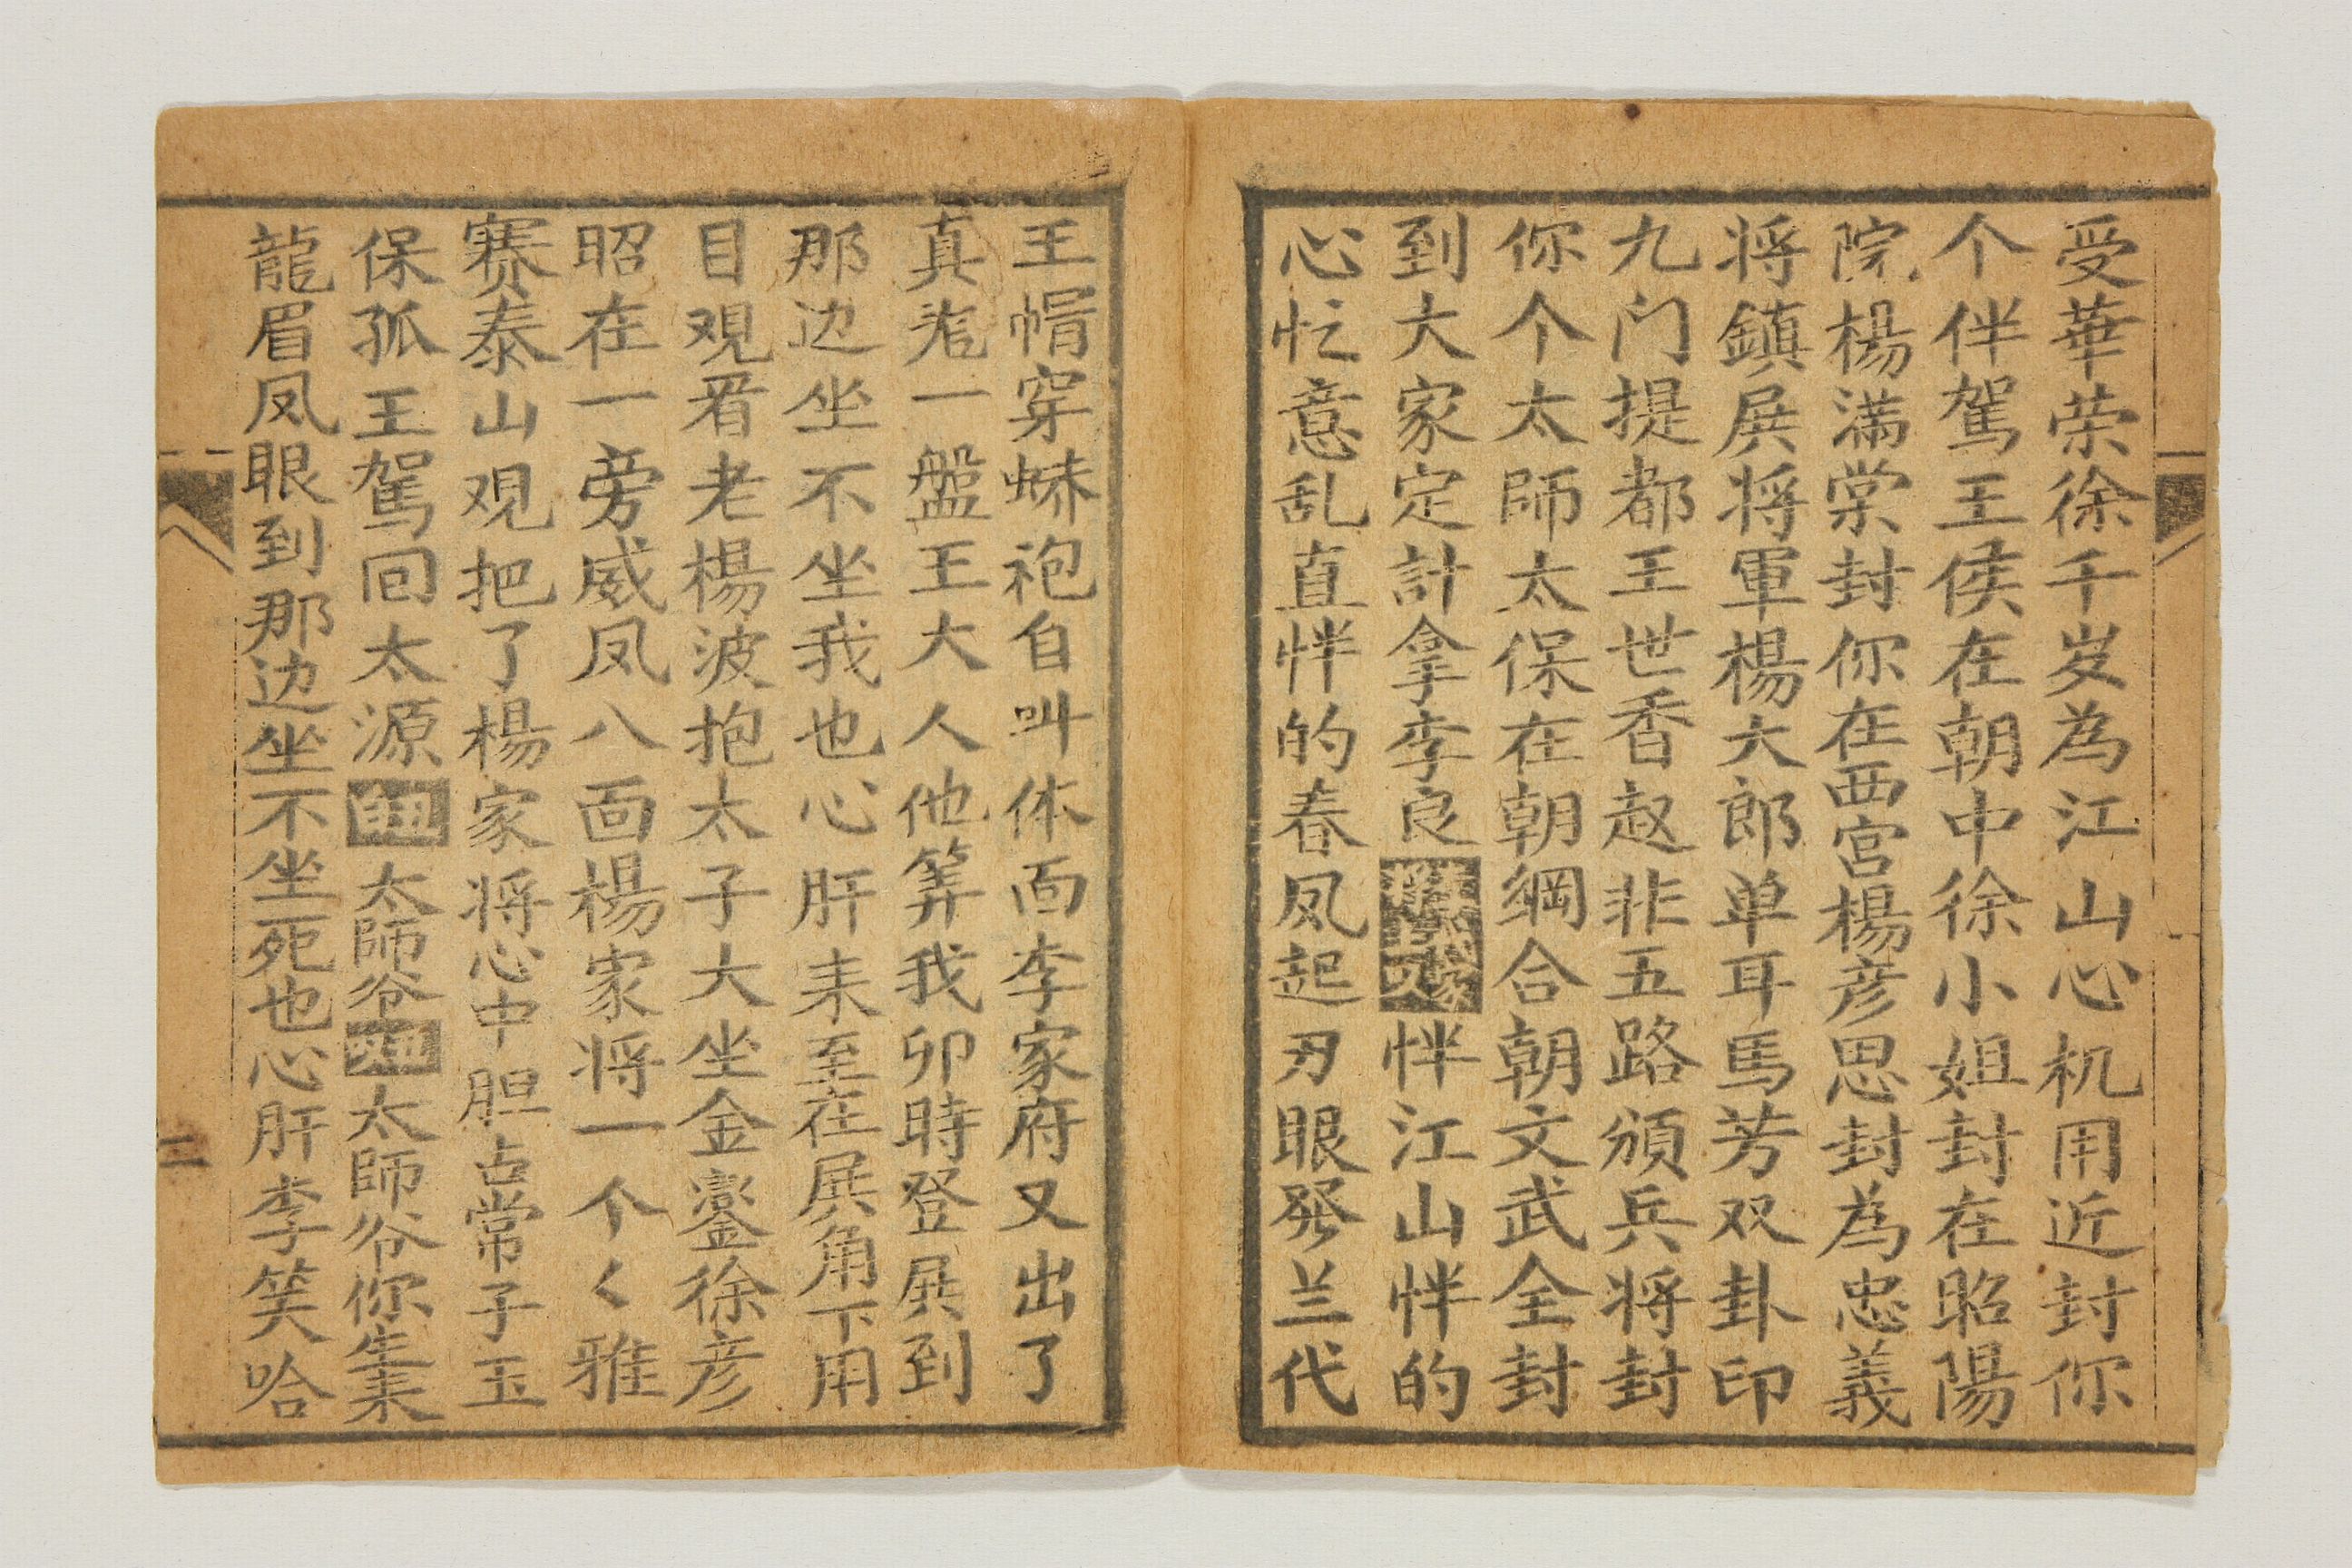 受華荣徐千岁為江山心机用近封你
个伴駕王侯在朝中徐小姐封在昭陽
院楊滿棠封你在西宫楊彦思封為忠義
将鎮展将軍楊大郎单耳馬芳双卦印
九门提都王世香赵非五路頒兵将封
你个太師太保在朝綱合朝文武全封
到大家定計拿李良怑江山怑的
心忙意乱直怑的春凤起刃眼発兰代
王帽穿蟒袍自叫体面李家府又出了
真着一盤王大人他筭我卯時登展到
那边坐不坐我也心肝耒至在展角下用
目观看老楊波抱太子大坐金鑾徐彦
昭在一旁威凤八面楊家将一个く雅
赛泰山观把了楊家将心中胆占常子玉
保孤王駕回太源太師爷太師爷你耒
龍眉凤眼到那边坐不坐死也心肝李笑哈
二